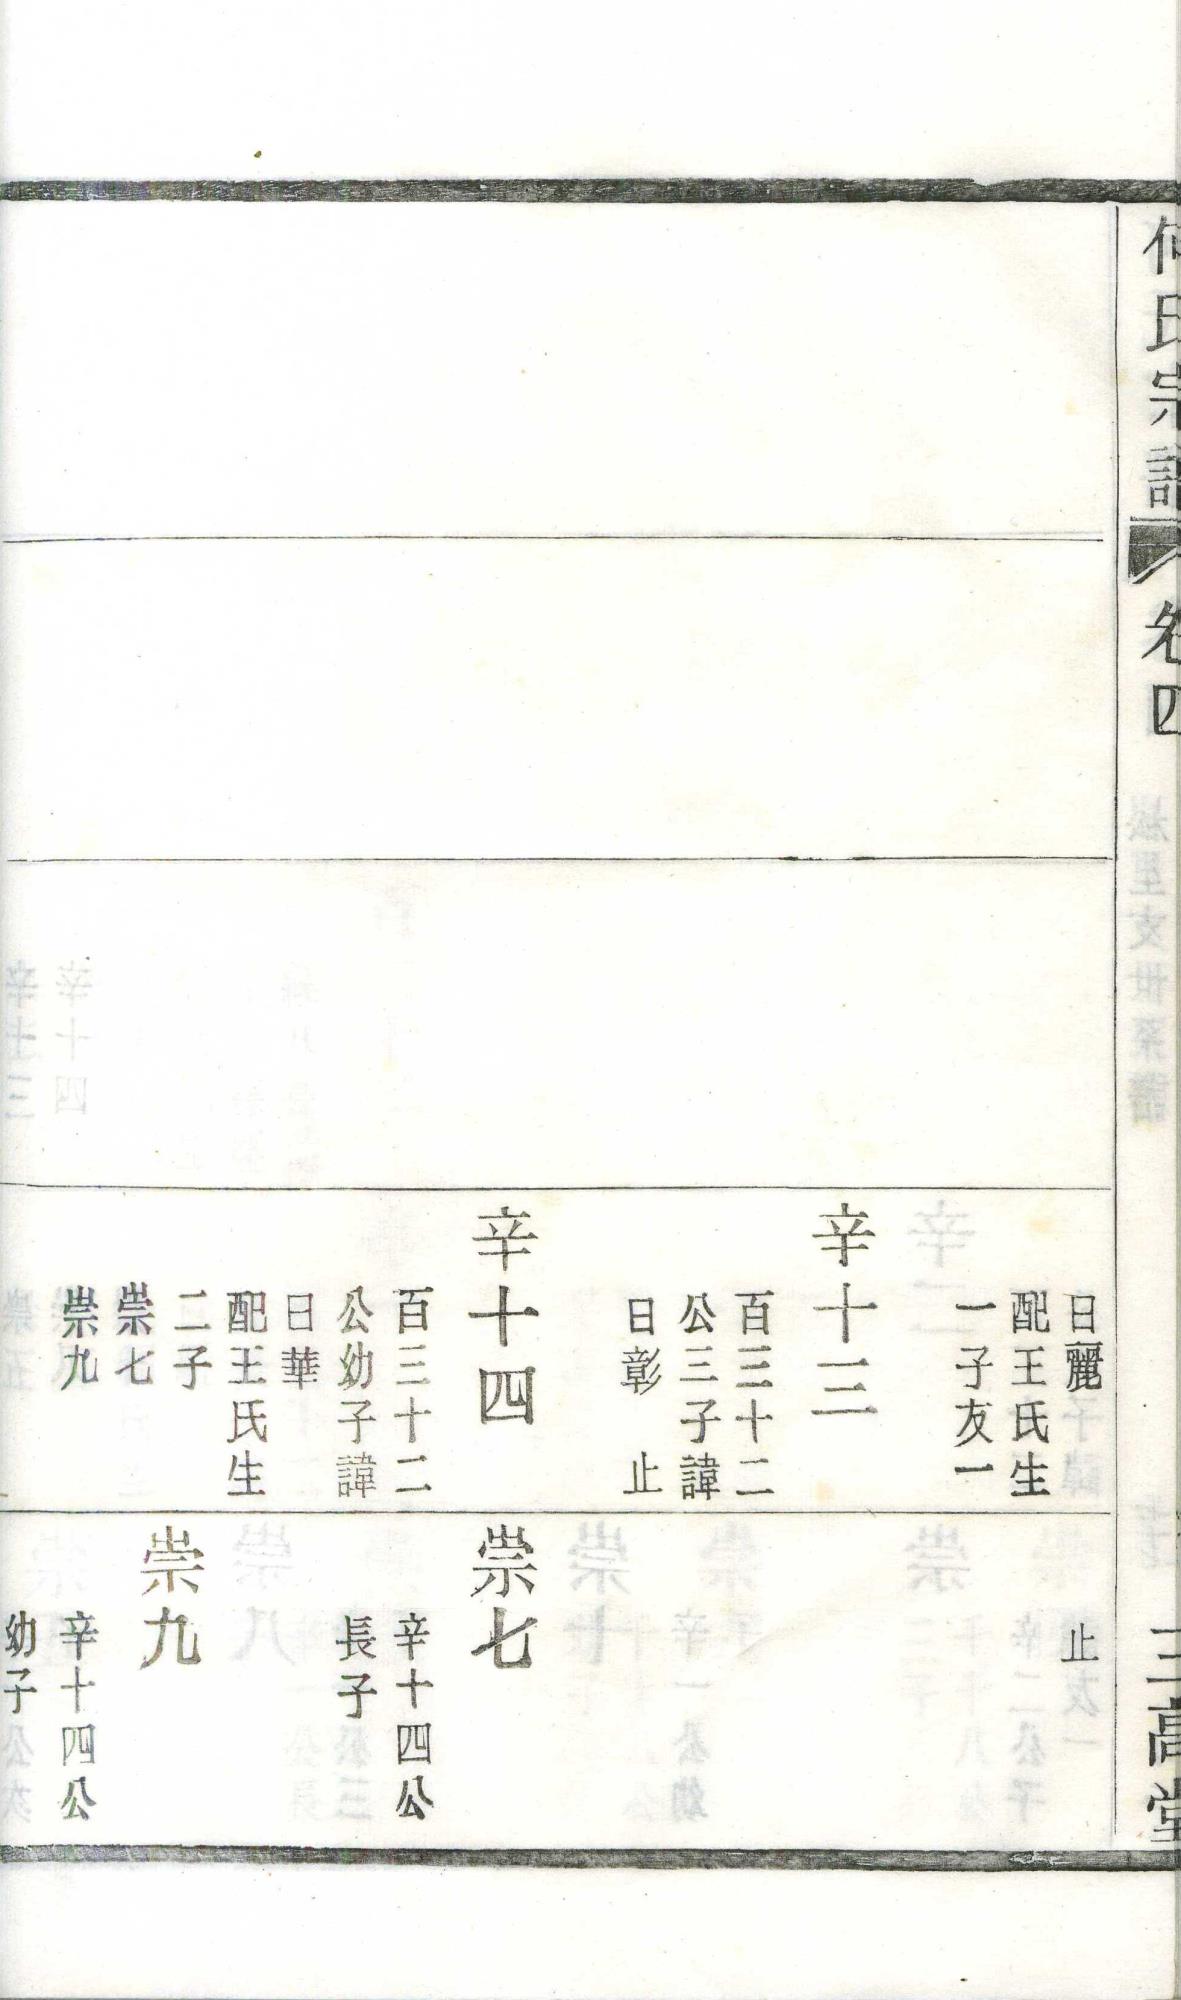 何氏宗譜
卷四
三高堂
日麗
配王氏生
一子友一
辛十三
百三十二
公三子諱
日彰 止
辛十四
百三十二
公幼子諱
日華
配王氏生
二子
崇七
崇九
止
崇七
辛十四公
長子
崇九
辛十四公
幼子